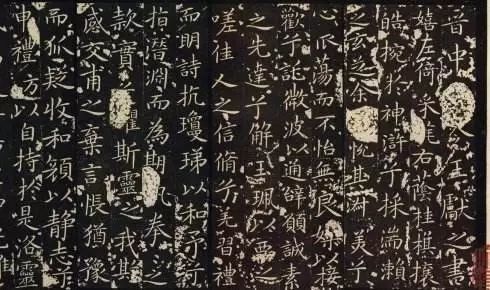 晉中王獻之書
嬉左倚采旄右蔭桂旗攘
皓捥於神滸兮採湍瀨
之玄芝余悅其淑美兮
心振蕩而不怡無良媒以接
歡兮託微波以通辭願誠素
之先達兮解玉珮以要之
嗟佳人之信脩兮羌習禮
而明詩抗瓊珶以和予兮
指潛淵而為期執拳之
款實兮懼斯靈之我欺
感交甫之棄言悵猶豫
而狐疑收和顏以靜志兮
申禮防以自持於是洛靈